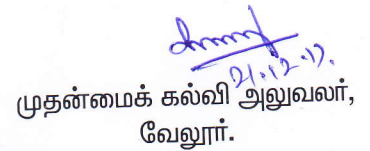 21.12.17.
முதன்மைக் கல்வி அலுவலர்,
வேலூர்.